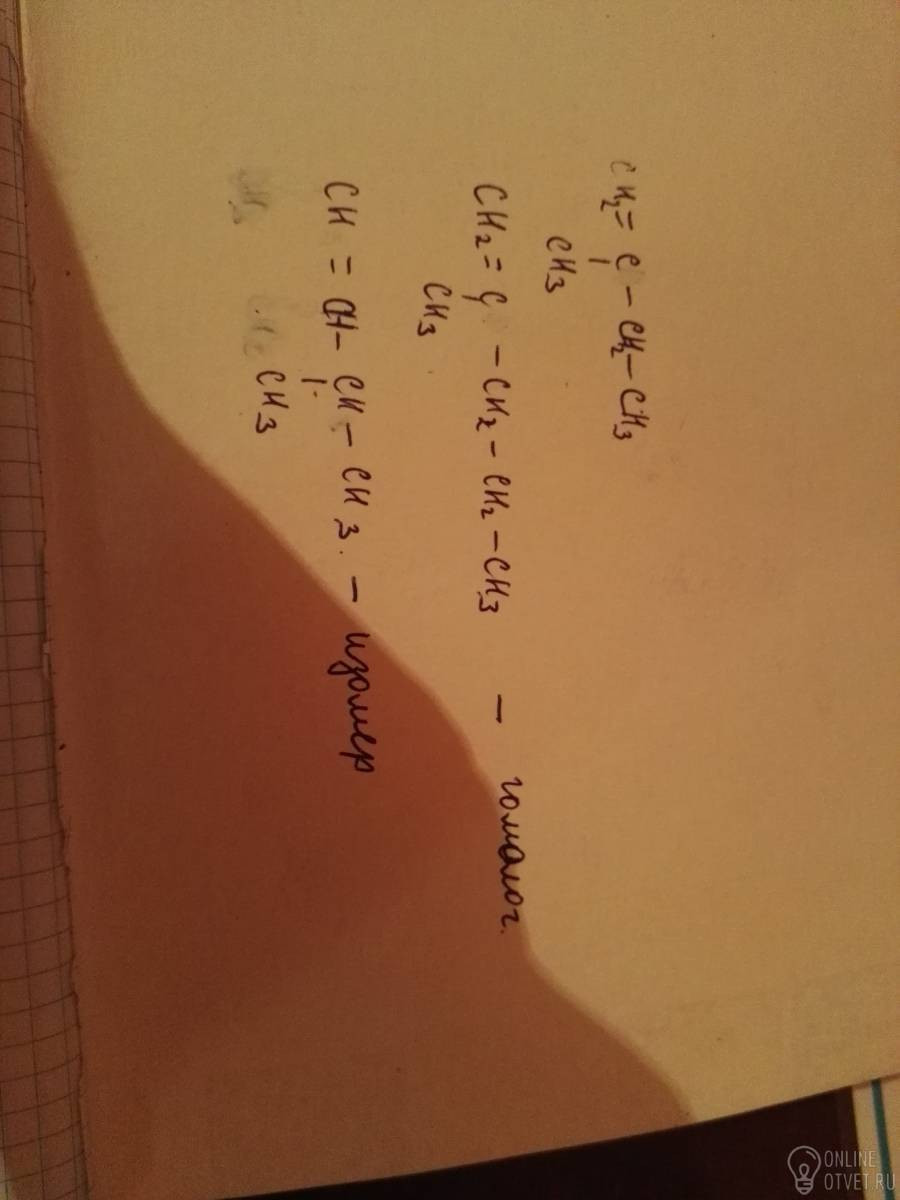 CH2=C-CH2-CH3
CH3
CH2=C-CH2-CH2-CH3 - гомолог.
CH3
CH=CH-CH-CH3. - изомер
CH3
ONLINE
OTVET.RU